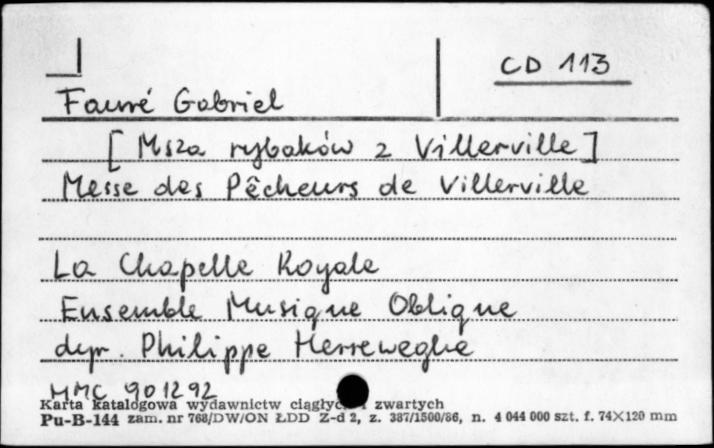 CD 113
Fauré Gabriel
[Msza rybaków z Villerville]
Messe des Pêcheurs de Villerville
La Chapelle Royale
Ensemble Musique Oblique
dyr. Philippe Herreweghe
MMC 901292
Karta katalogowa wydawnictw ciągłych i zwartych
Pu-B-144 zam. nr 768/DW/ON ŁDD Z-d 2, z. 387/1500/86, n. 4 044 000 szt. f. 74X120 mm